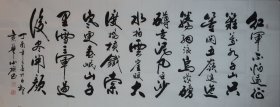 紅軍不怕遠征
難萬水千山只
等閑五嶺逶迤
騰細浪烏蒙磅
礴走泥丸金沙
水拍雲崖暖大
渡橋橫鐵索
寒更喜岷山千
里雪三軍過
後盡開顏